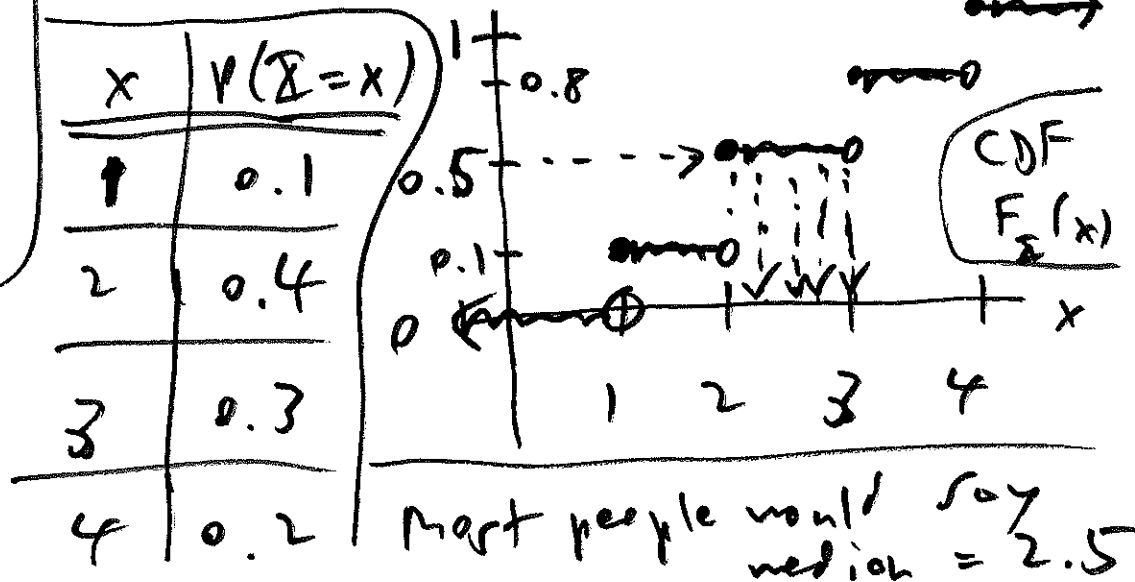 x P(X=x)
1 0.1
2 0.4
3 0.3
4 0.2
1
0.8
0.5
0.1
0
1 2 3 4
x
CDF
F_X(x)
Most people would say
median = 2.5